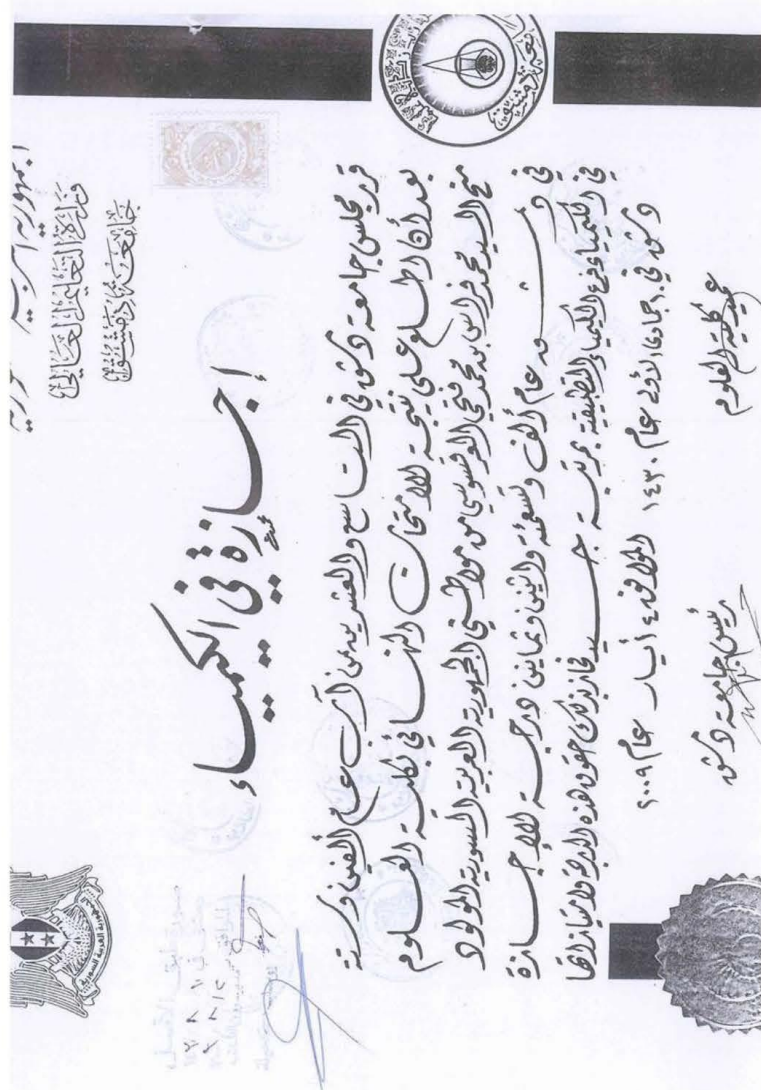 وزارة التعليم العالي
جامعة دمشق
إجازة في الكيمياء
قرر مجلس جامعة دمشق في التاسع والعشرين من آب عام ألفين وستة
بعد أن اطلع على نتيجة الامتحان النهائي بكلية العلوم
منح السيد محمد فراس بن محمد فتحي العرقسوسي من مواطني الجمهورية العربية السورية المولود
في دمشق عام ألف وتسعمئة واثنين وثمانين درجة الإجازة
في الكيمياء فرع الكيمياء التطبيقية بمرتبة جيد فحاز بذلك حقوق هذه الدرجة وامتيازاتها
دمشق في ١٠ جمادى الأولى عام ١٤٣٠ الموافق ٤ أيار عام ٢٠٠٩
عميد كلية العلوم
رئيس جامعة دمشق